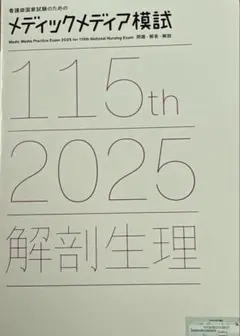 看護師国家試験のための
メディックメディア模試
Medic Media Practice Exam 2025 for 115th National Nursing Exam 問題・解答・解説
115th
2025
解剖生理